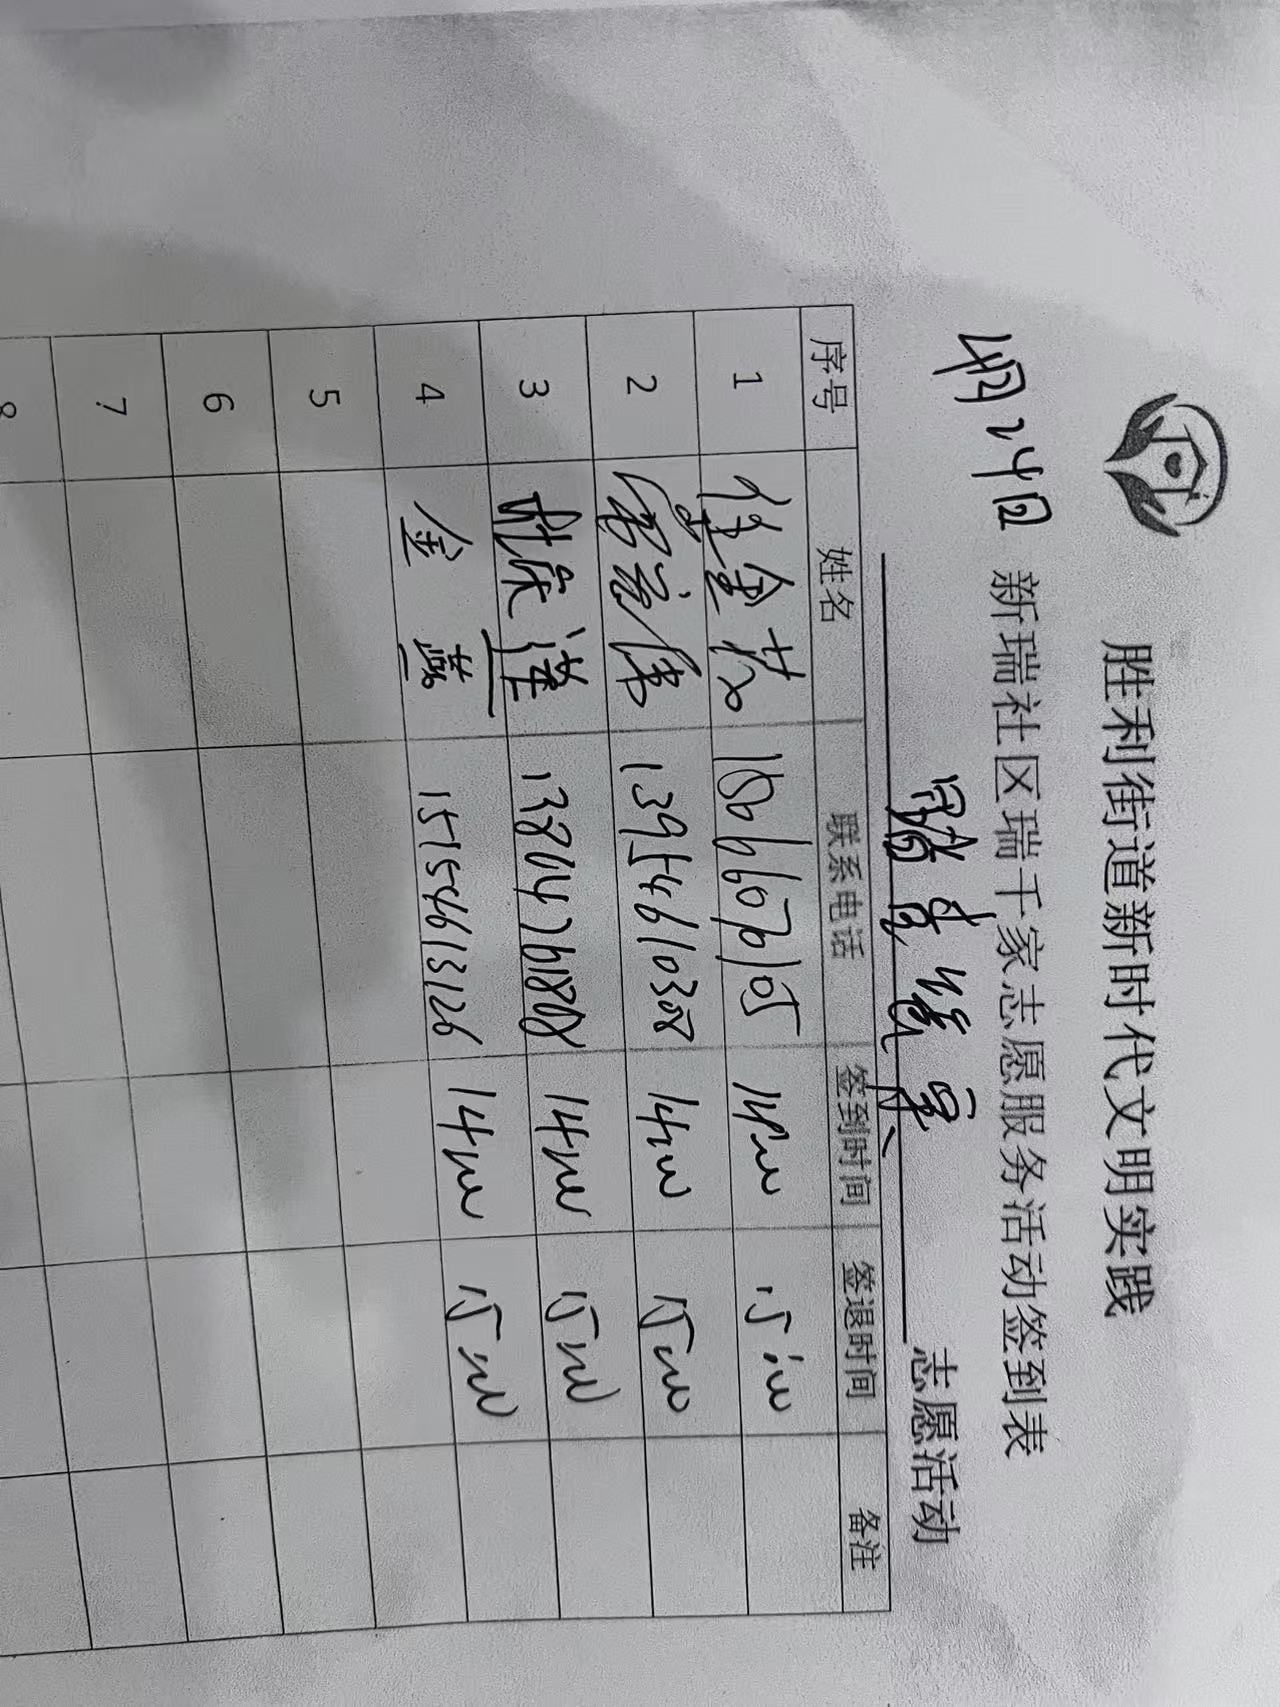 胜利街道新时代文明实践
4月24日 新瑞社区瑞千家志愿服务活动签到表
志愿活动
序号 姓名 联系电话 签到时间 签退时间 备注
1 徐金花 14:00 15:00
2 13954610308 14:00 15:00
3 13864761808 14:00 15:00
4 金燕 15754613126 14:00 15:00
5
6
7
8